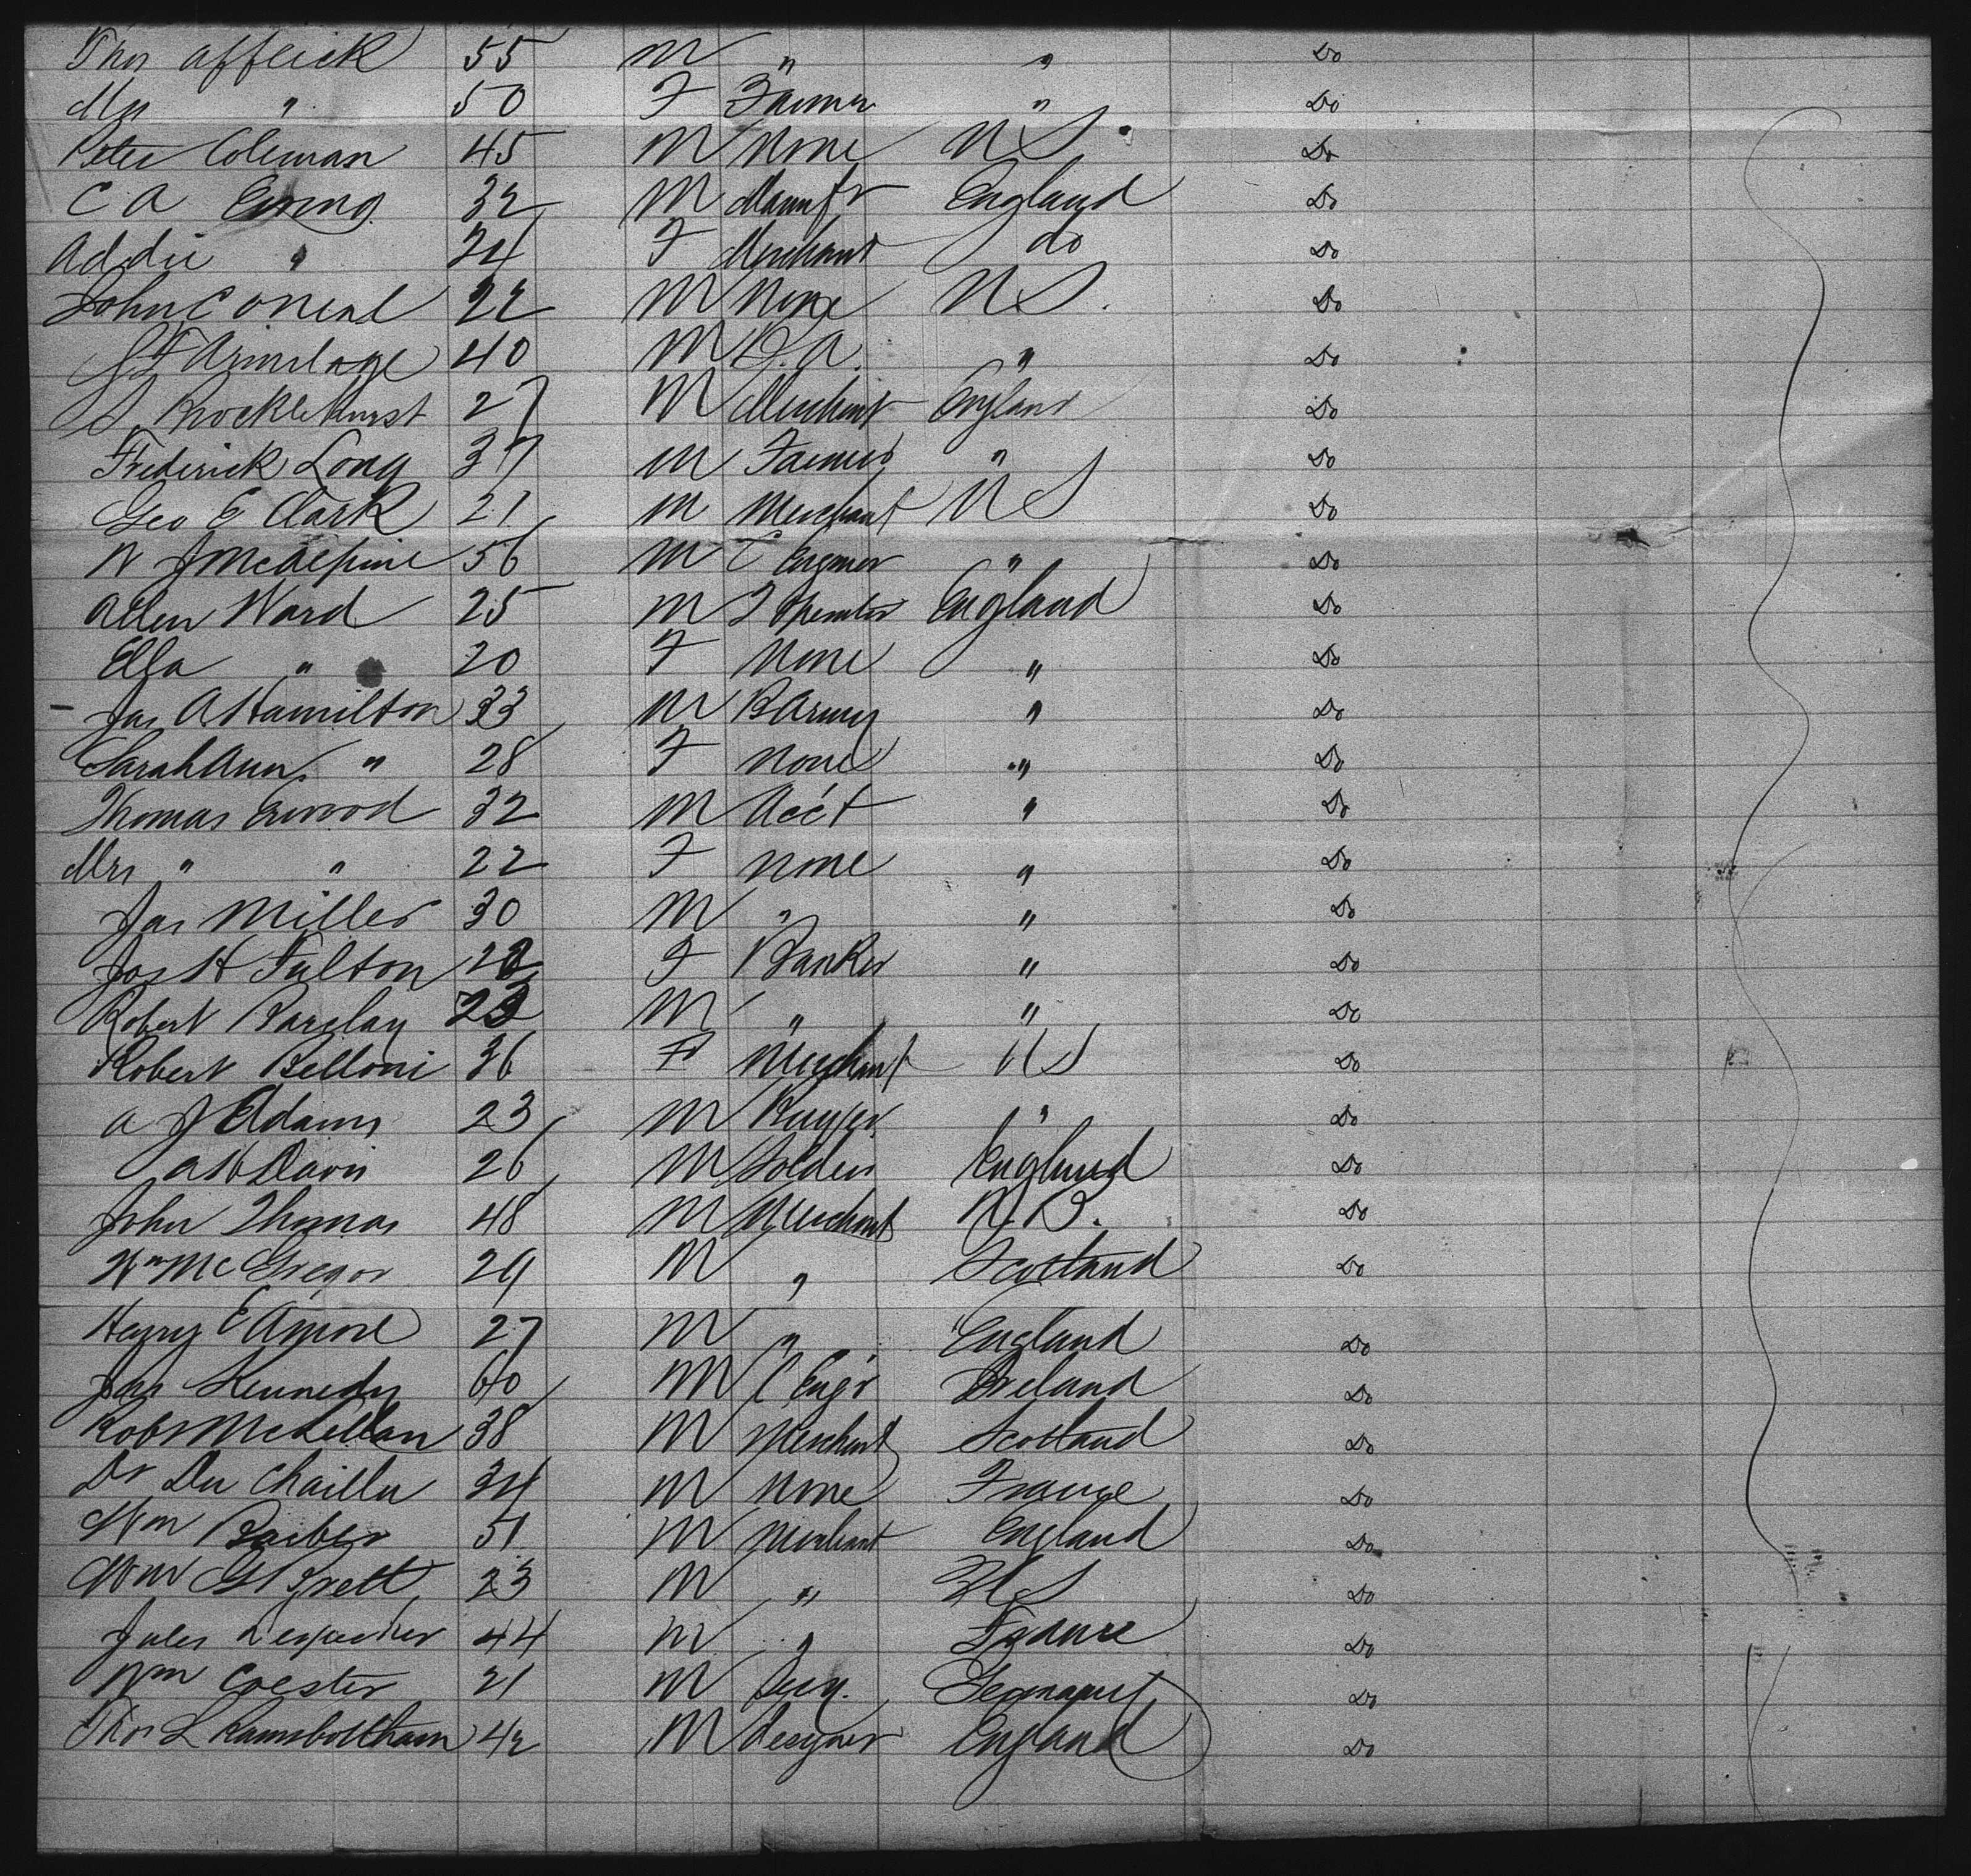 Thos Affleick 55 M " " Do
Mrs " 50 F Farmer " Do
Peter Coleman 45 M None US. Do
C A Ewing 32 M Manufr England Do
Addie " 24 F Merchant do Do
John C ONeal 22 M None US. Do
Armitage 40 M " Do
S. Brocklehurst 27 M Merchant England Do
Frederick Long 37 M Farmer " Do
Geo E Clark 21 M Merchant US Do
W J McAlpine 56 M C Engineer " Do
Allen Ward 25 M T Operator England Do
Ella " 20 F None " Do
Jas A Hamilton 33 M B Army " Do
Sarah Ann " 28 F None " Do
Thomas 32 M Acct " Do
Mrs " " 22 F None " Do
Jas Miller 30 M " " Do
Jos H Fulton F Banker " Do
Robert Barclay 23 M " " Do
Robert Belloni 36 F Merchant US Do
A J Adams 23 M " Do
A H Davis 26 M Soldier England Do
John Thomas 48 M Merchant N.B. Do
Wm McGregor 29 M " Scotland Do
Henry E Amore 27 M " England Do
Jas Kennedy 60 M C Engr Ireland Do
Robt McLellan 38 M Merchant Scotland Do
Dr Du Chaillu 34 M None France Do
Wm Barber 51 M Merchant England Do
Wm G 23 M " US Do
Jules 44 M " France Do
Wm Coester 21 M Germany Do
Thos L Ramsbottham 42 M Designer England Do